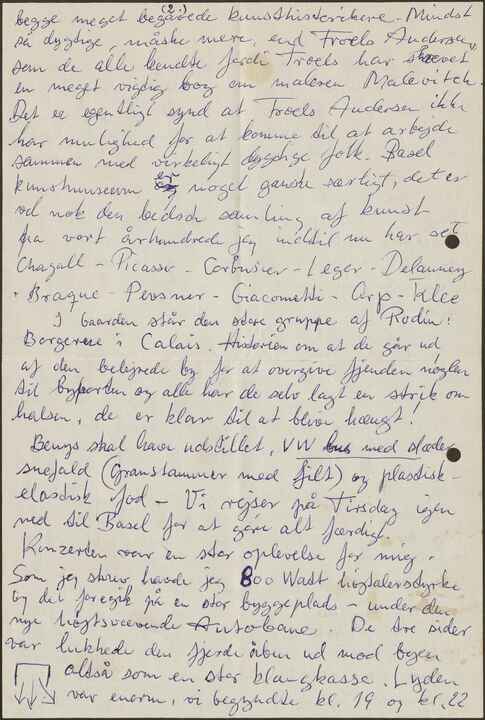 (2.)
begge meget begavede kunsthistorikere. Mindst
så dygtige, måske mere, end Troels Andersen,
som de alle kendte fordi Troels har skrevet
en meget vigtig bog om maleren Malevitch.
Det er egentligt synd at Troels Andersen ikke
har mulighed for at komme til at arbejde
sammen med virkeligt dygtige folk. Basel
kunstmuseum er noget ganske særligt, det er
vel nok den bedste samling af kunst
fra vort århundrede jeg indtil nu har set
Chagall - Picasso - Corbusier - Leger - Delauney
- Braque - Pevsner - Giacometti - Arp - Klee
I Gaarden står den store gruppe af Rodin:
Borgerne i Calais. Historien om at de går ud
af den belejrede by for at overgive fjenden nøglen
til byporten og alle har de selv lagt en strik om
halsen, de er klar til at blive hængt!
Beuys skal have udstillet, VW bus med slæder
snefald (Granstammer med filt) og plastisk-
elastisk fod - Vi rejser på Tirsdag igen
ned til Basel for at gøre alt færdigt
Konzerten var en stor oplevelse for mig.
Som jeg skrev havde jeg 800 Watt højtalerstyrke
og det foregik på en stor byggeplads - under den
nye højtsvævende Autobane. De tre sider
var lukkede den fjerde åben ud mod byen
altså som en stor klangkasse. Lyden
var enorm, vi begyndte kl. 19 og kl. 22